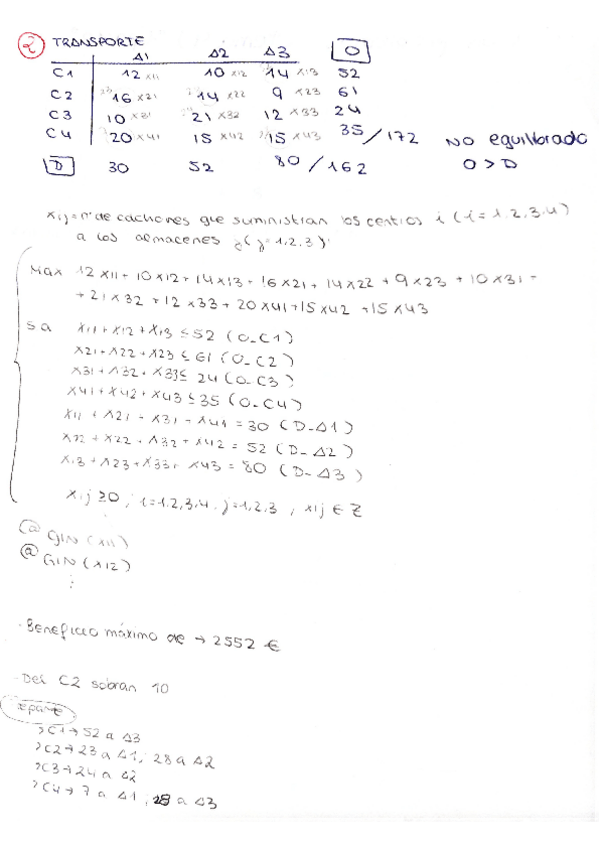 2 TRANSPORTE
A1 A2 A3 O
C1 12 x11 10 x12 14 x13 52
C2 16 x21 14 x22 9 x23 61
C3 10 x31 21 x32 12 x33 24
C4 20 x41 15 x42 15 x43 35 / 172 NO equilibrado
D 30 52 80 / 162 O > D
xij = nº de cachones que suministran los centros i (i = 1,2,3,4)
a los almacenes j (j = 1,2,3).
Max 12x11 + 10x12 + 14x13 + 16x21 + 14x22 + 9x23 + 10x31 +
+ 21x32 + 12x33 + 20x41 + 15x42 + 15x43
s.a x11 + x12 + x13 ≤ 52 (O_C1)
x21 + x22 + x23 ≤ 61 (O_C2)
x31 + x32 + x33 ≤ 24 (O_C3)
x41 + x42 + x43 ≤ 35 (O_C4)
x11 + x21 + x31 + x41 = 30 (D_A1)
x12 + x22 + x32 + x42 = 52 (D_A2)
x13 + x23 + x33 + x43 = 80 (D_A3)
xij ≥ 0, i = 1,2,3,4. j = 1,2,3 ; xij ∈ Z
@ GIN (x11)
@ GIN (x12)
:
- Beneficio máximo de → 2552 €
- Del C2 sobran 10
reparte
> C1 → 52 a A3
> C2 → 23 a A1, 28 a A2
> C3 → 24 a A2
> C4 → 7 a A1, 28 a A3